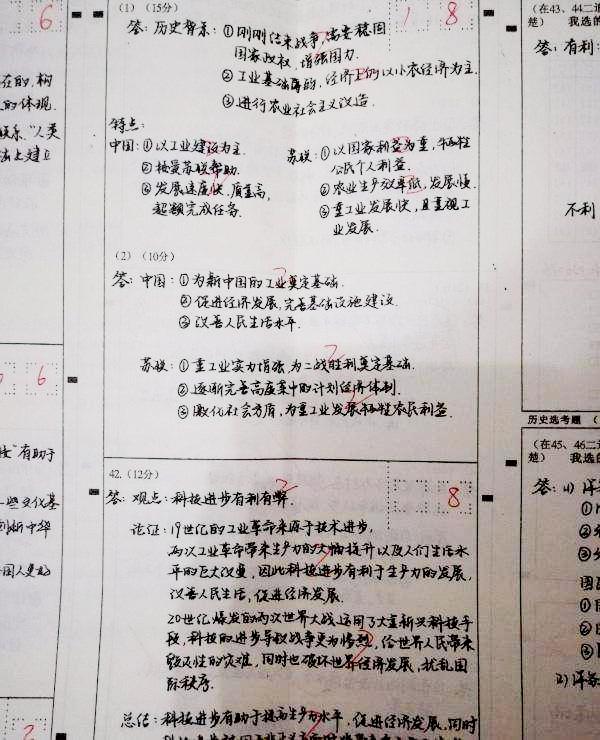 6
在的,构
的体现.
联系."人类
法上建立
6
6
按"有助于
一些文化基
中华
(1)(15分)
18
答:历史背景:①刚刚结束战争,需要稳固
国家政权,增强国力.
②工业基础薄弱,经济上仍以小农经济为主.
③进行农业社会主义改造.
特点:
中国:①以工业建设为主.
②接受苏联帮助.
③发展速度快,质量高,
超额完成任务.
苏联:①以国家利益为重,牺牲
公民个人利益.
②农业生产效率低,发展慢.
③重工业发展快,且重视工
业发展.
(2)(10分)
答:中国:①为新中国的工业奠定基础.
②促进经济发展,完善基础设施建设.
③改善人民生活水平.
苏联:①重工业实力增强,为二战胜利奠定基础.
②逐渐完善高度集中的计划经济体制.
③激化社会矛盾,为重工业发展牺牲农民利益.
42.(12分)
8
答:观点:科技进步有利有弊.
论证:19世纪的工业革命来源于技术进步,
而以工业革命带来生产力的大幅提升以及人们生活水
平的巨大改变,因此科技进步有利于生产力的发展,
改善人民生活,促进经济发展.
20世纪爆发的两次世界大战运用了大量新兴科技手
段,科技的进步导致战争更为惨烈,给世界人民带来
毁灭性的灾难,同时也破坏世界经济发展,扰乱国
际秩序.
总结:科技进步有助于提高生产力水平,促进经济发展,同时
(在43、44二
楚) 我选的
答:有利:
不利
历史选考题(
(在45、46二
楚) 我选的
答:(1)